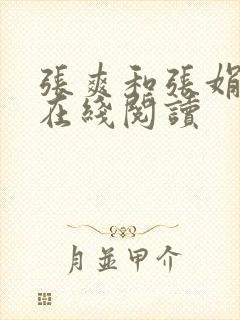 張爽和張娟
在綫閱讀
月並甲介